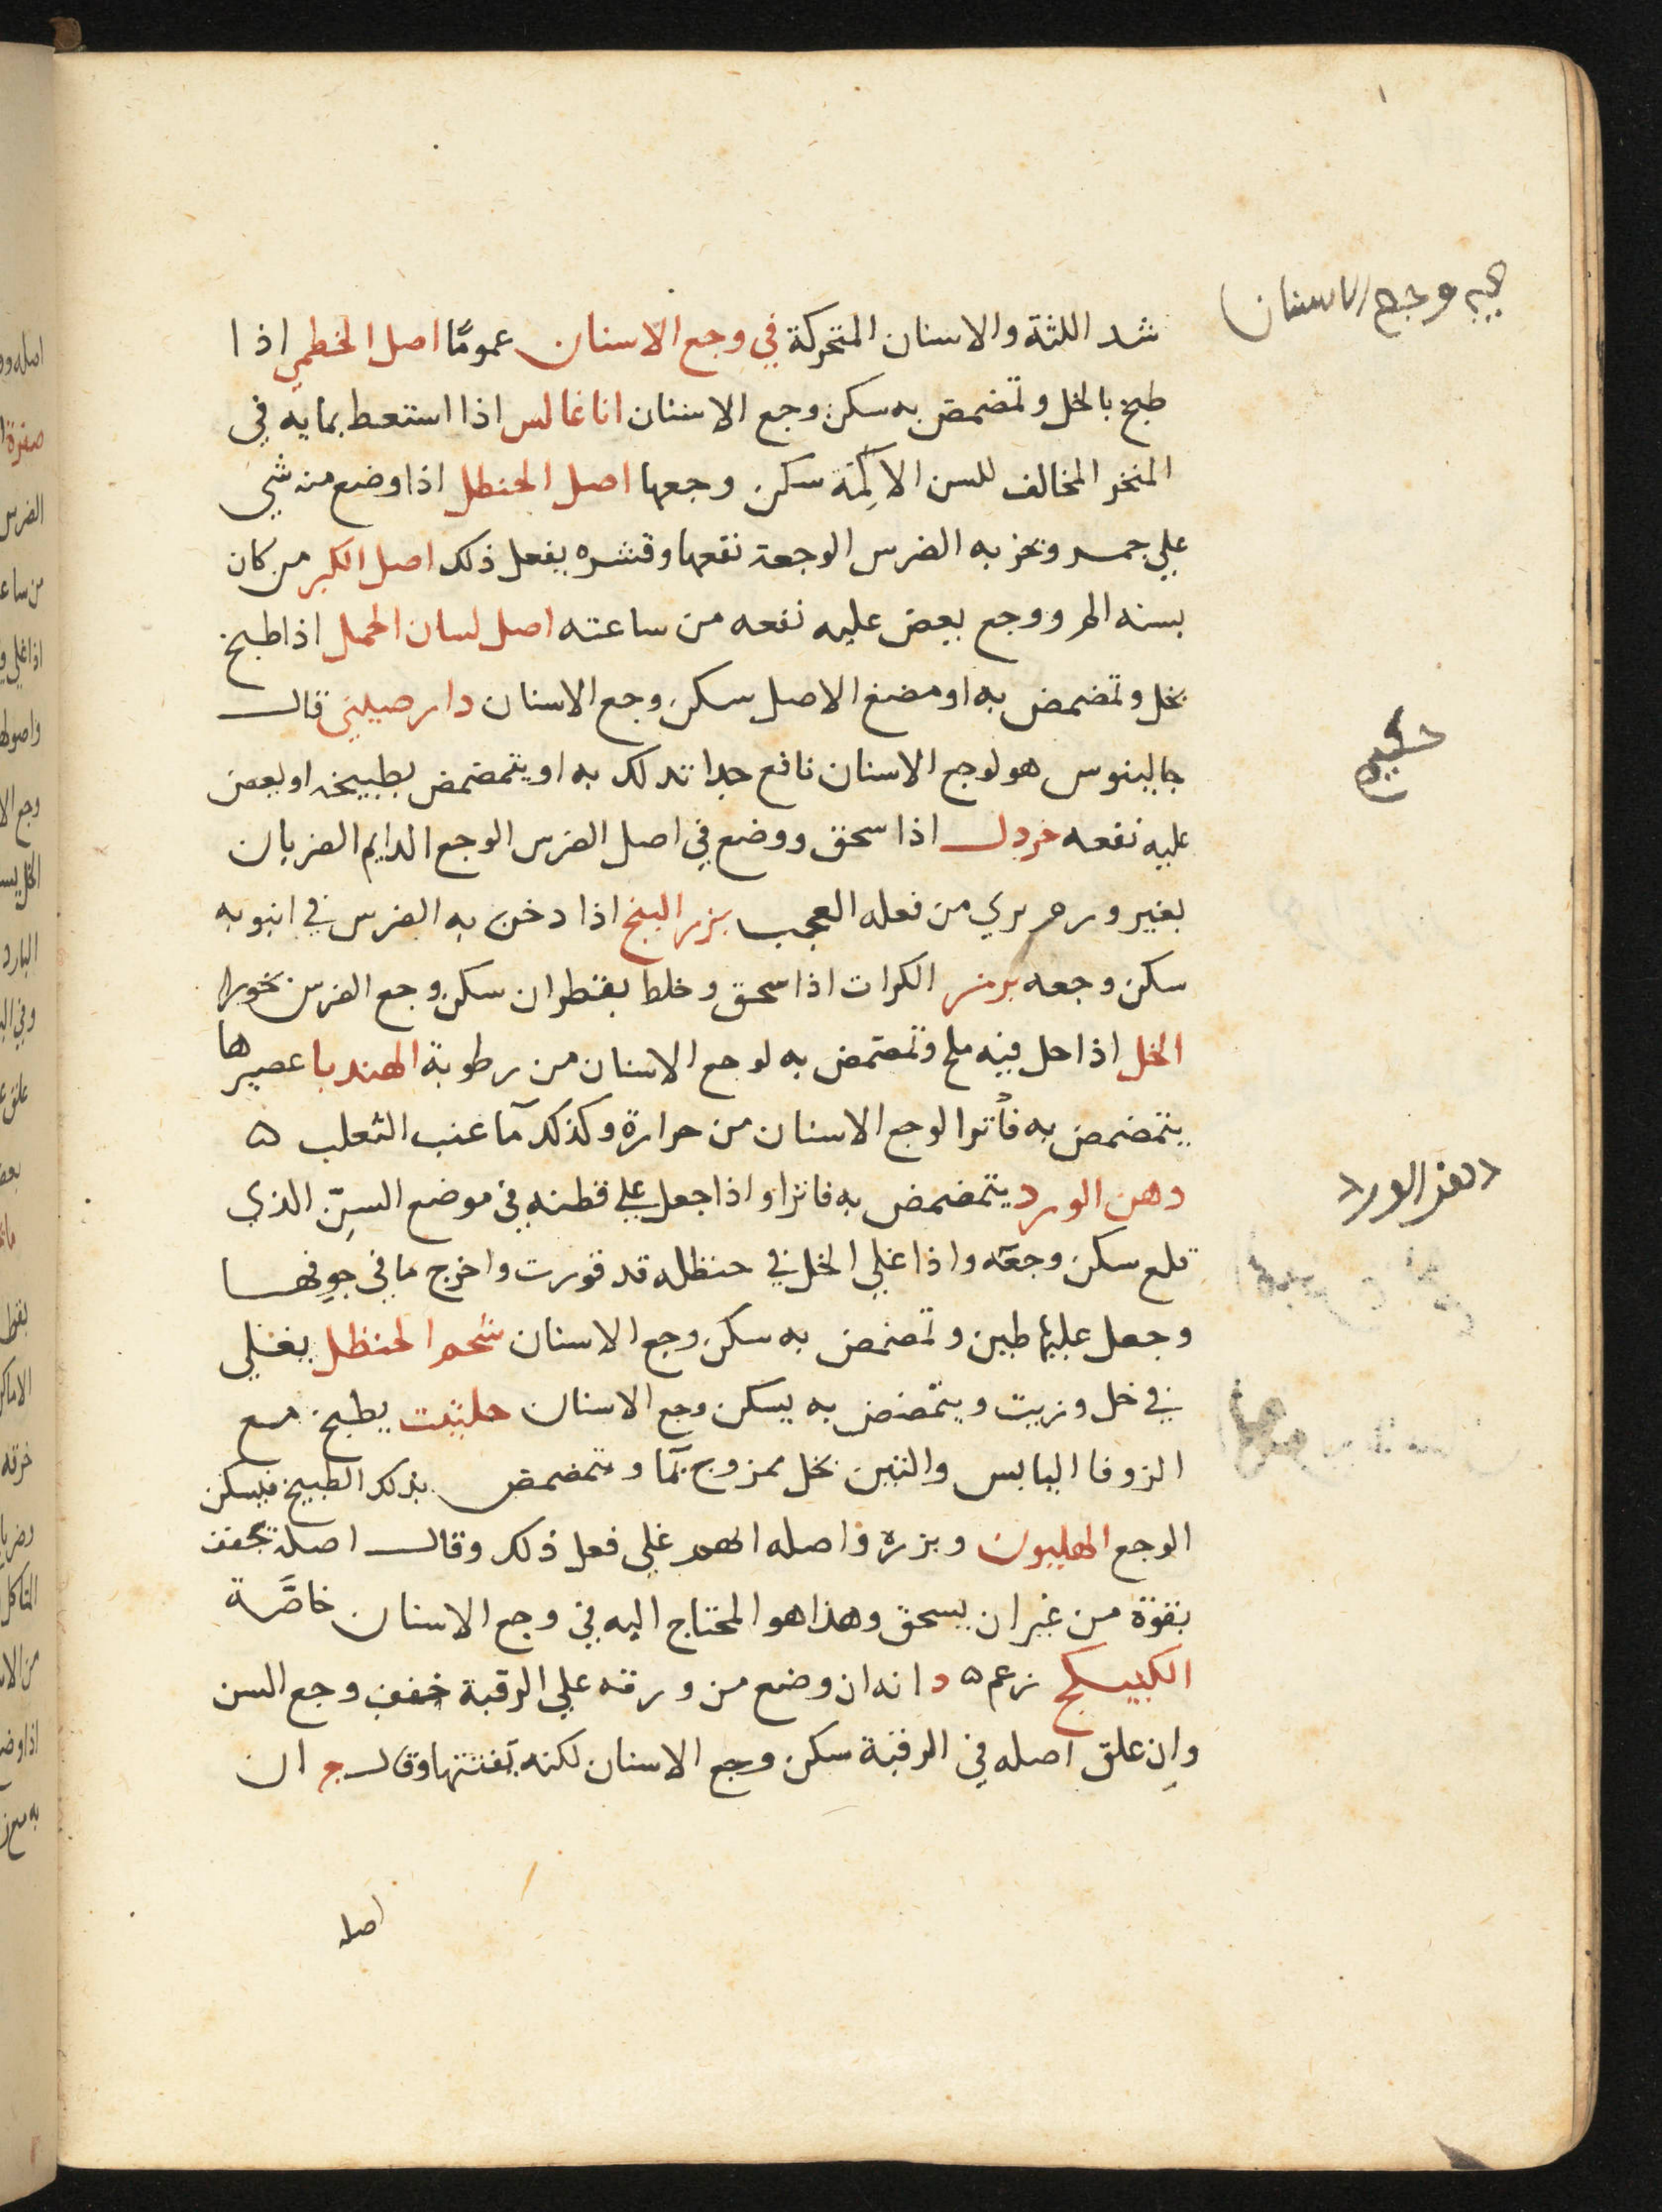 شد اللثة والاسنان المتحركة في وجع الاسنان عموما اصل الخطمي اذا
طبخ بالخل وتمضمض به سكن وجع الاسنان اناغالس اذا استعط بمايه في
المنخر المخالف للسن الالمة سكن وجعها اصل الحنظل اذا وضع منه شي
علي جمر وبخر به الضرس الوجعة نفعها وقشره يفعل ذلك اصل الكبر من كان
بسنه الم ووجع يعض عليه نفعه من ساعته اصل لسان الحمل اذا طبخ
بخل وتمضمض به او مضغ الاصل سكن وجع الاسنان دارصيني قال
جالينوس هو لوجع الاسنان نافع جدا تدلك به او يتمضمض بطبيخه او يعض
عليه نفعه خردل اذا سحق ووضع في اصل الضرس الوجع الدايم الضربان
بغير ورم يري من فعله العجب بزر البنج اذا دخن به الضرس في انبوبه
سكن وجعه بزر الكرات اذا سحق وخلط بقطران سكن وجع الضرس بخورا
الخل اذا حل فيه ملح وتمضمض به لوجع الاسنان من رطوبة الهندبا عصيرها
يتمضمض به فاترا لوجع الاسنان من حرارة وكذلك مآ عنب الثعلب ٥
دهن الورد يتمضمض به فاترا واذا جعل علي قطنه في موضع السن الذي
قلع سكن وجعه واذا غلي الخل في حنظله قد قورت واخرج ما في جوفها
وجعل عليها طين وتمضمض به سكن وجع الاسنان شحم الحنظل يغلي
في خل وزيت ويتمضمض به يسكن وجع الاسنان حلتيت يطبخ مع
الزوفا اليابس والتين بخل ممزوج بمآ ويتمضمض بذلك الطبيخ فيسكن
الوجع الهليون وبزره واصله غلي فعل ذلك وقال اصله تجفف
بقوة من غير ان يسحق وهذا هو المحتاج اليه في وجع الاسنان خاصة
الكبيكج زعم ٥ د انه ان وضع من ورقه علي الرقبة خفف وجع السن
وان علق اصله في الرقبة سكن وجع الاسنان لكنه يفتتها وقال ج ان
اصله
وجع الاسنان
دهن الورد